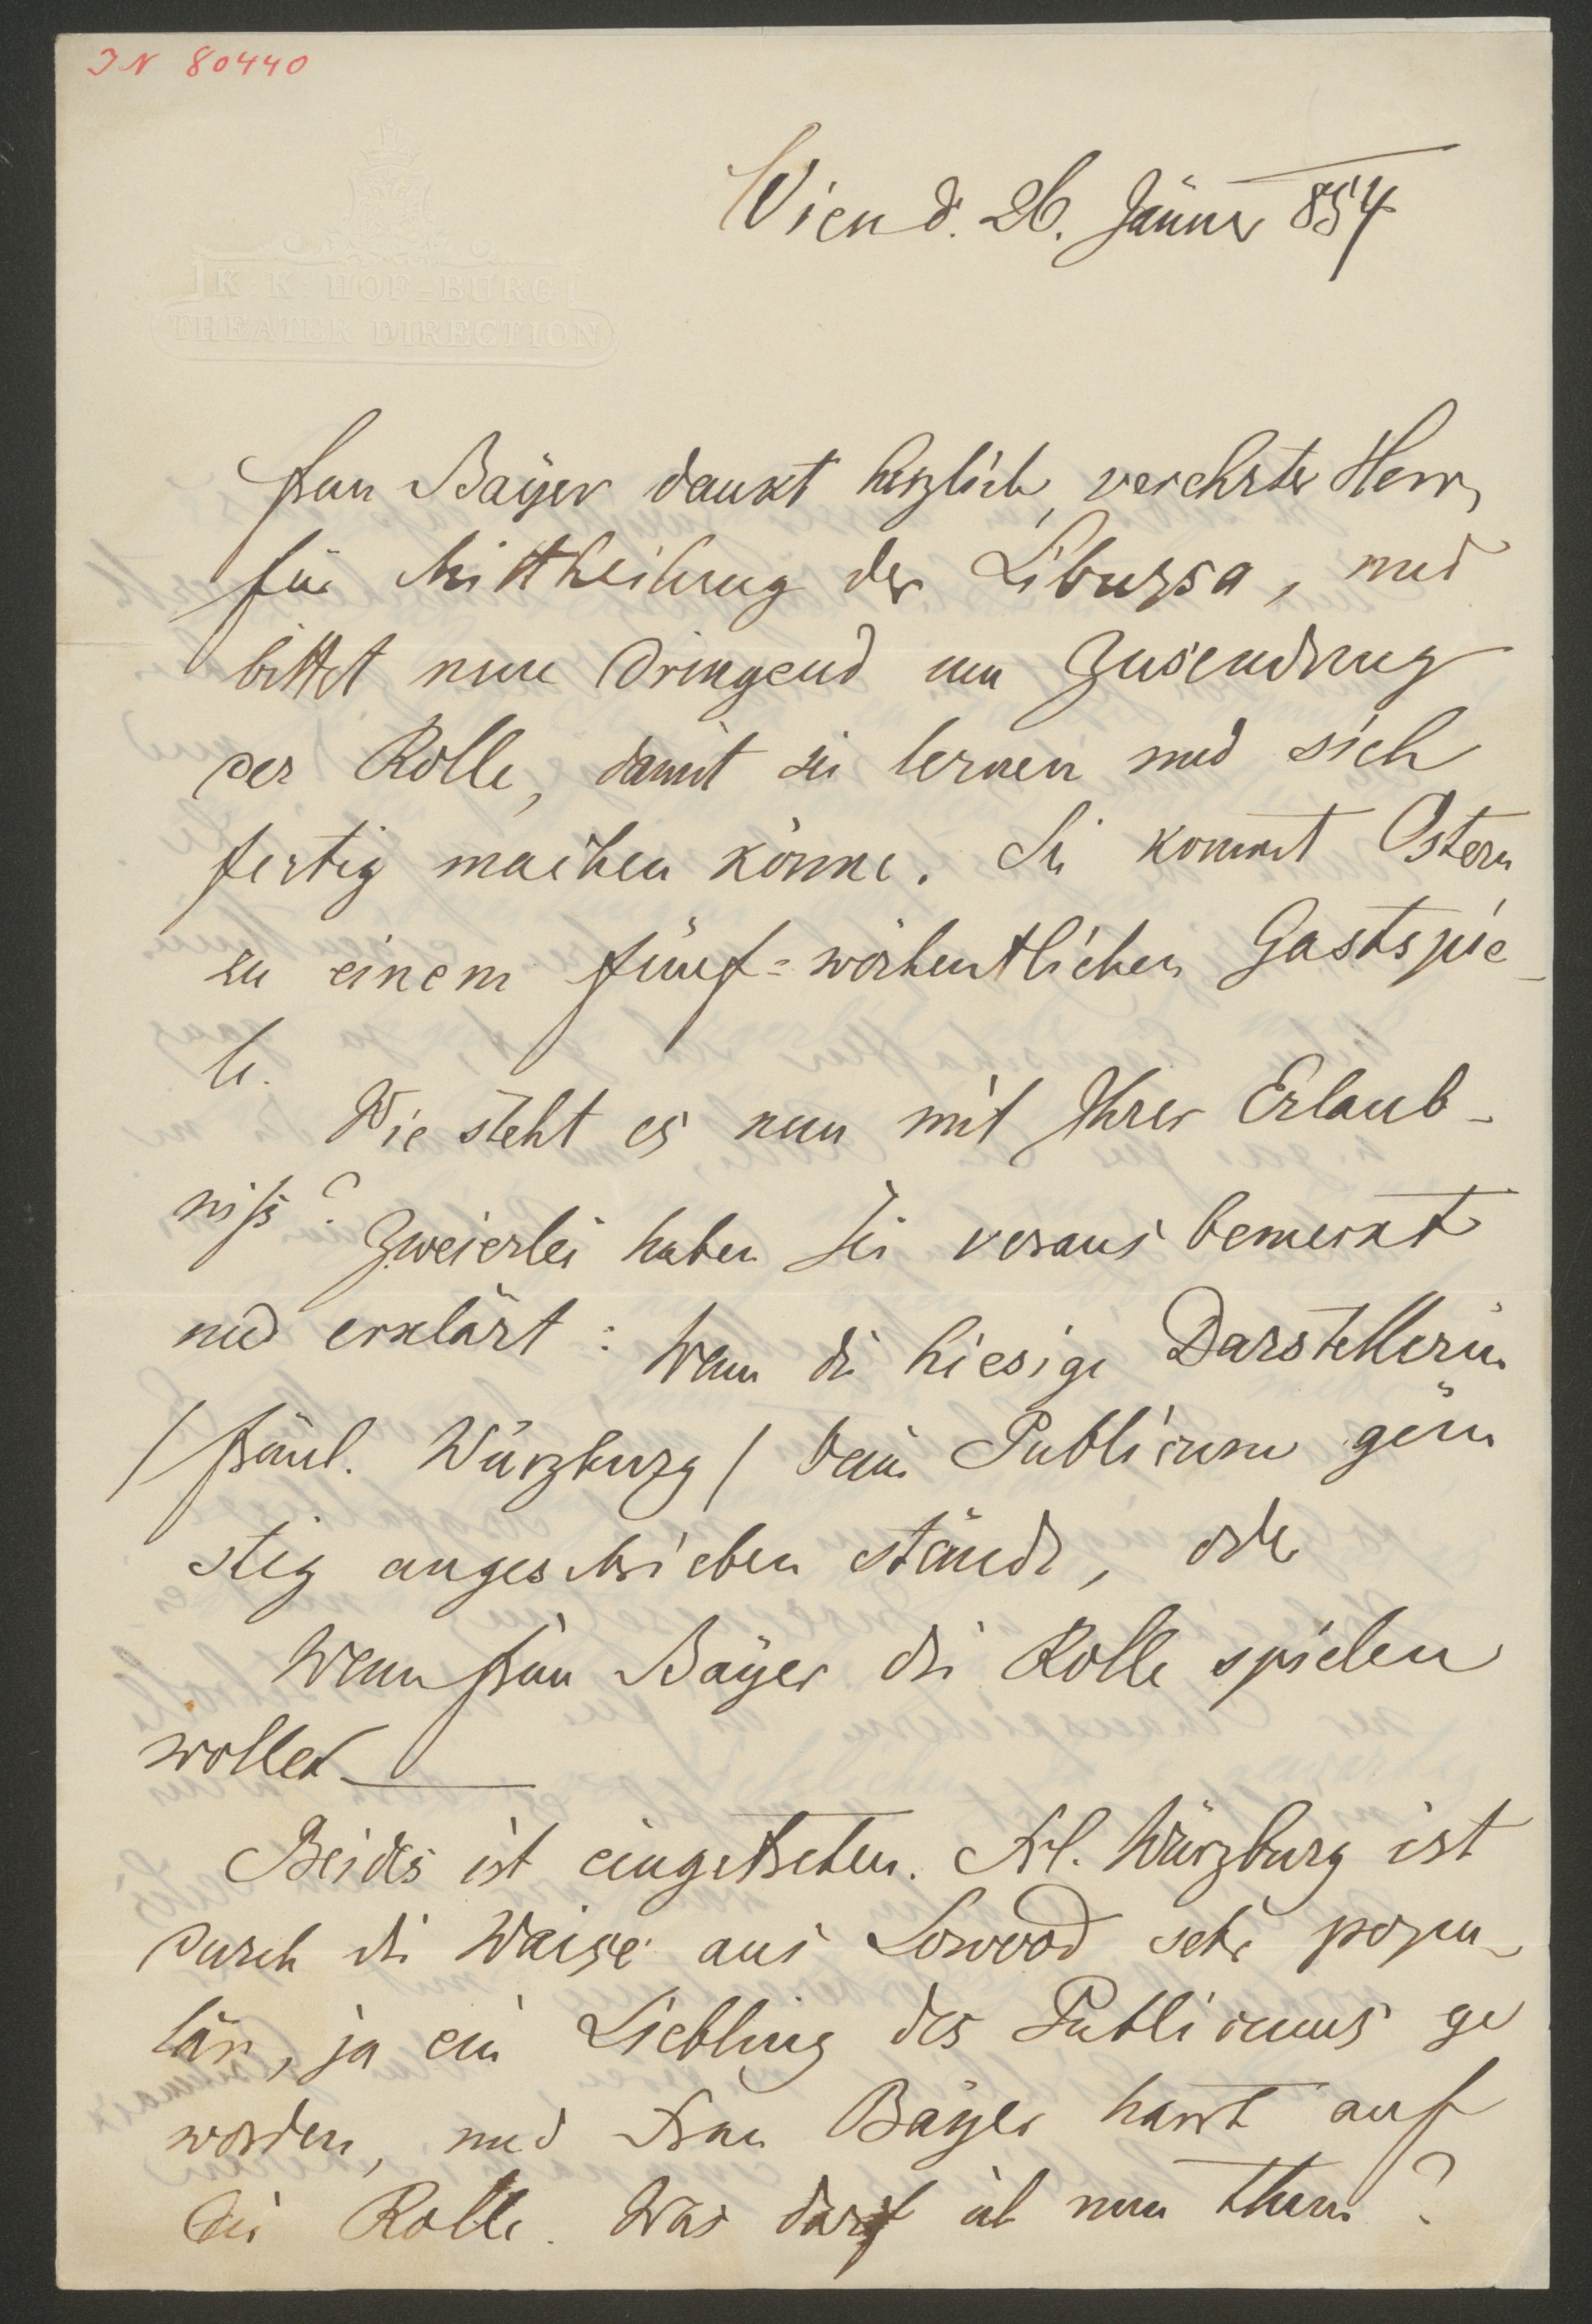 IN 80440
K. K. HOF-BURG
THEATER DIRECTION
Wien d. 26. Jänner 854
Frau Bayer dankt herzlich, verehrter Herr,
für Mittheilung der Libussa, und
bittet nun dringend um Zusendung
der Rolle, damit sie lernen und sich
fertig machen könne. Sie kommt Ostern
zu einem fünf=wöchentlichen Gastspie-
le.
Wie steht es nun mit Ihrer Erlaub-
niß?
Zweierlei haben Sie voraus bemerkt
und erklärt: Wenn die hiesige Darstellerin
/Fräul. Würzburg/ beim Publicum gün
stig angeschrieben stände, oder
Wenn Frau Bayer die Rolle spielen
wollte.
Beides ist eingetreten. Frl. Würzburg ist
durch die Waise aus Lowood sehr popu-
lär, ja ein Liebling des Publicums ge
worden, und Frau Bayer harrt auf
die Rolle. Was darf ich nun thun?